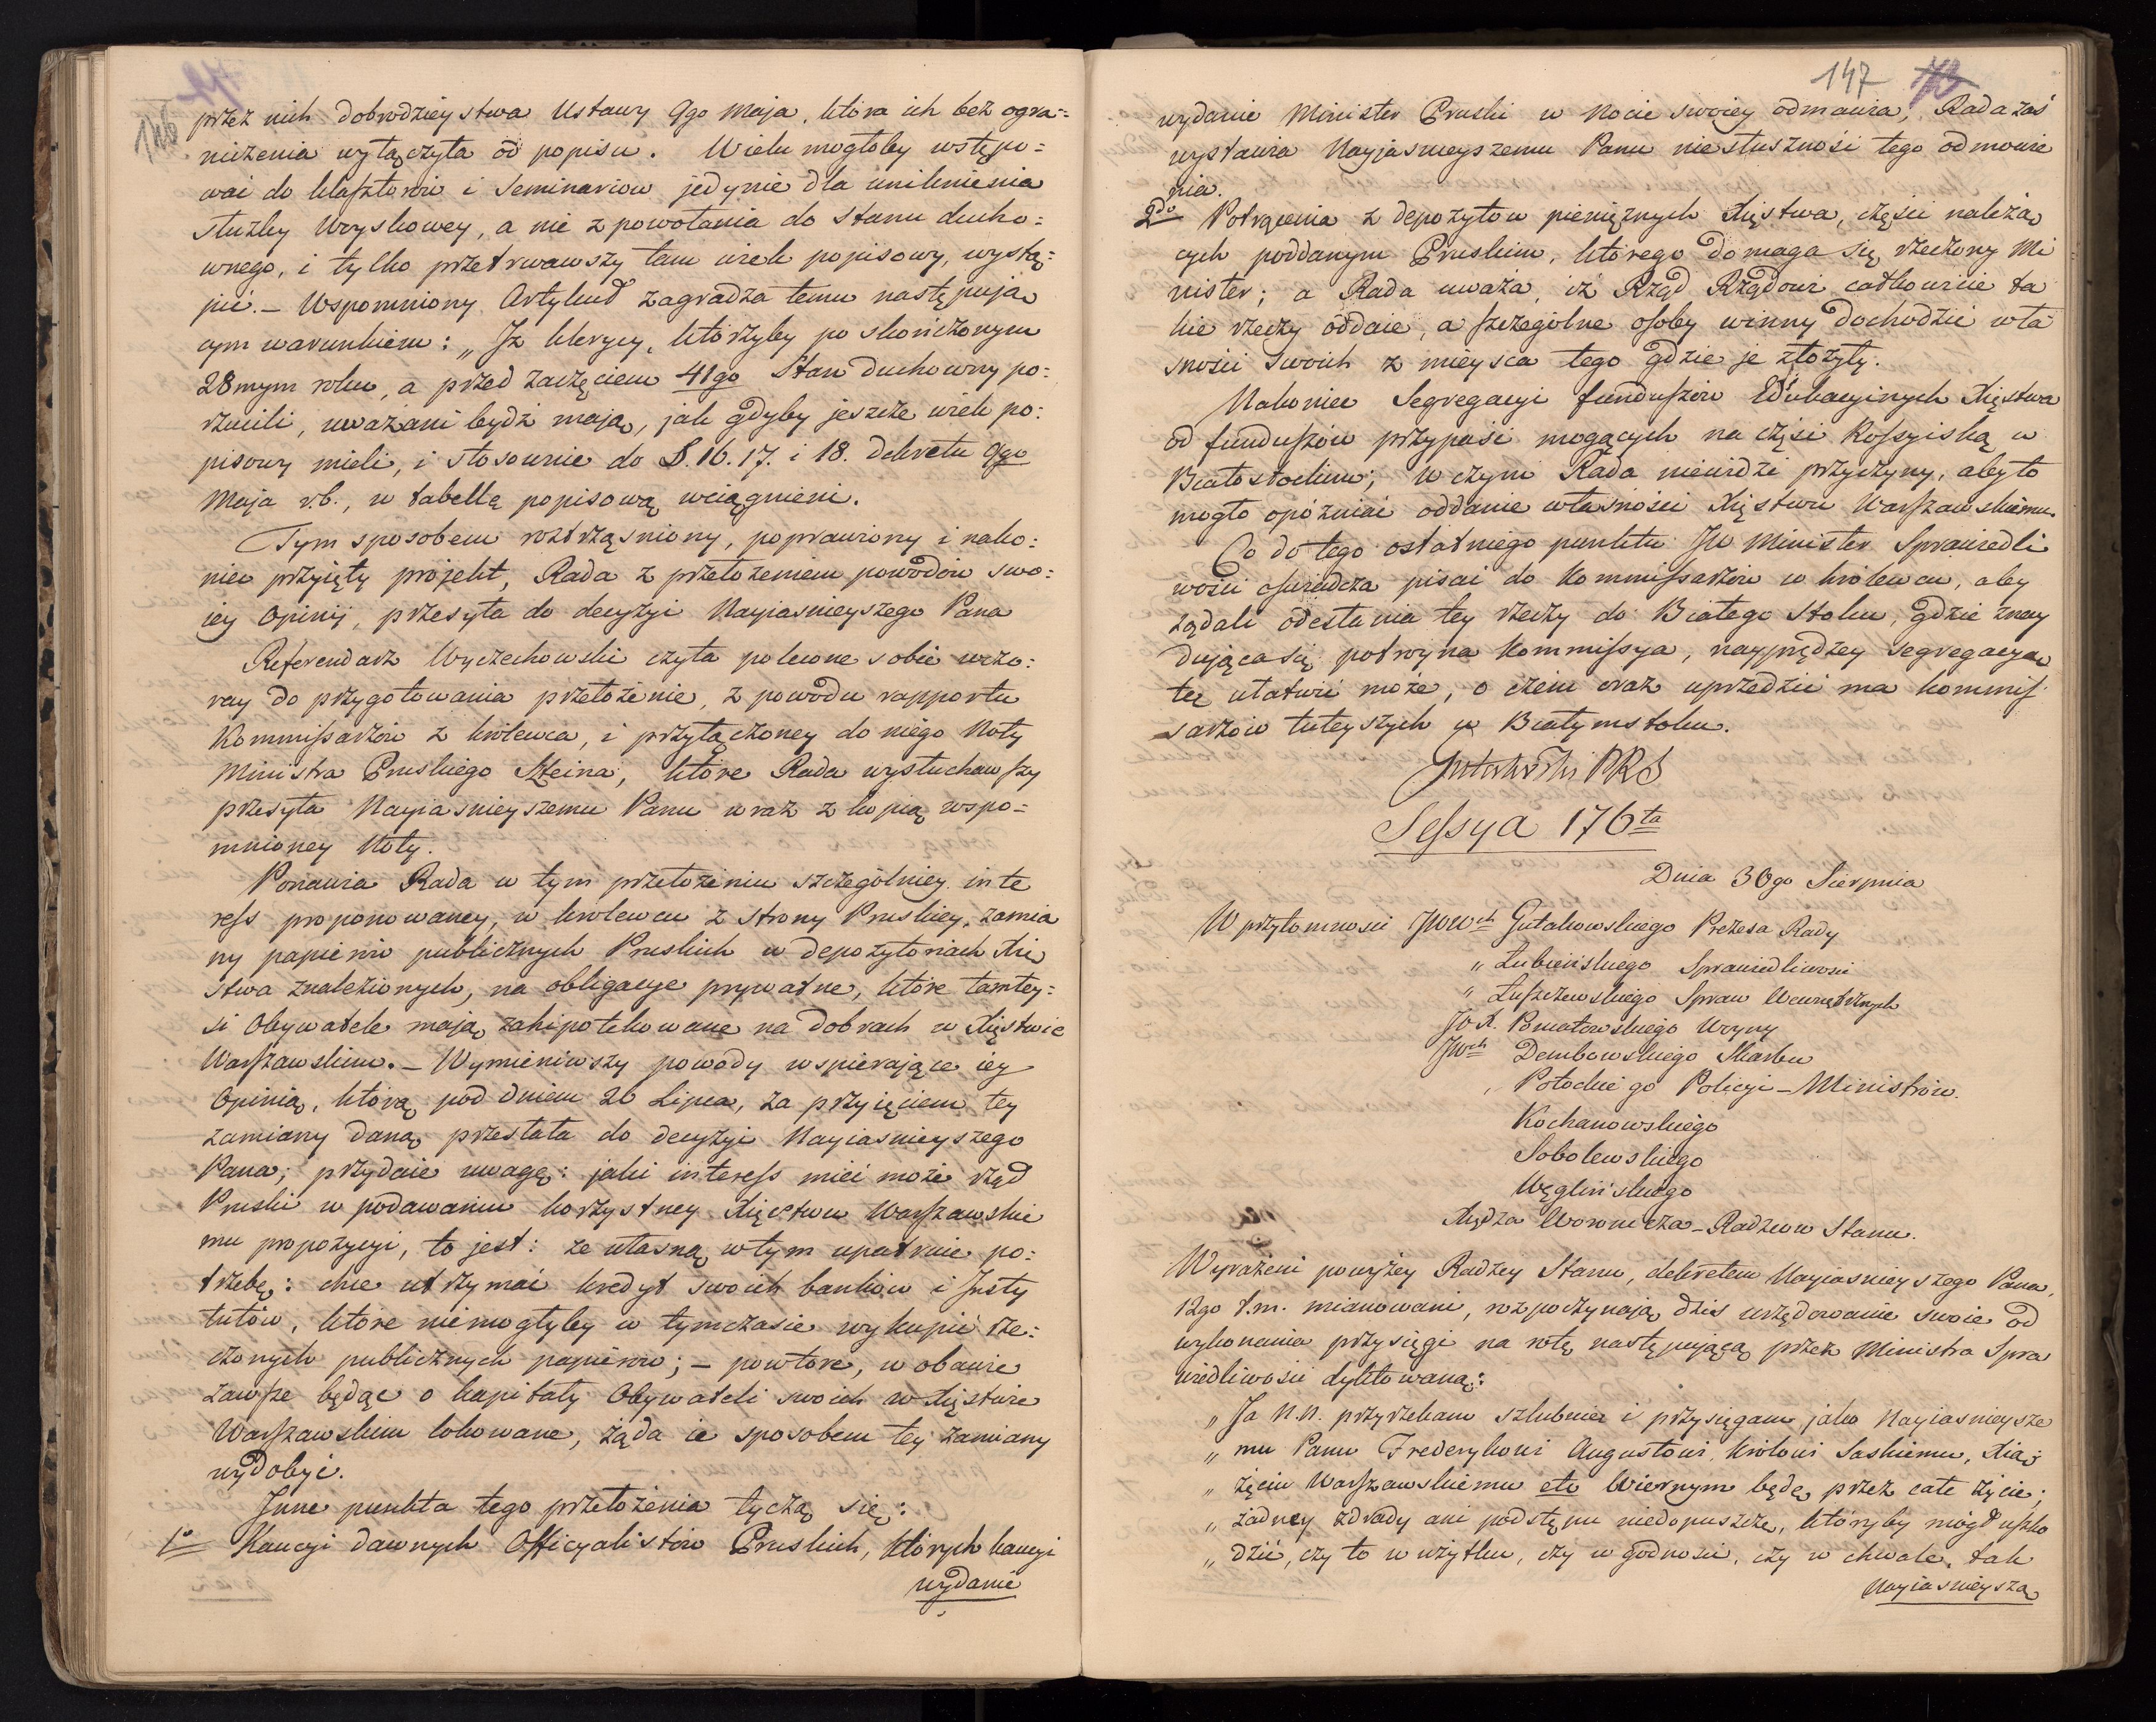 146
przez nich dobrodzieystwa Ustawy 9go Maja, która ich bez ogra=
niczenia wyłączyła od popisu. Wielu mogłoby wstępo=
wać do klasztorów i Seminariow jedynie dla uniknienia
służby Woyskowey, a nie z powołania do Stanu ducho=
wnego, i tylko przetrwawszy tam wiek popisowy, wystą=
pić. – Wspomniony Artykuł zagradza temu następują
cym warunkiem: „Iż klerycy, którzyby po skończonym
28mym roku, a przed zaczęciem 41go Stan duchowny po=
rzucili, uważani bydź mają, jak gdyby jeszcze wiek po=
pisowy mieli, i stosownie do §. 16. 17. i 18. dekretu 9go
Maja r.b., w tabellę popisową wciągnieni.
Tym sposobem roztrząśniony, poprawiony i nako=
niec przyięty projekt, Rada z przełożeniem powodów swo=
iey Opinij, przesyła do decyzyi Nayiasnieyszego Pana
Referendarz Wyczechowski czyta polecone sobie wczo=
ray do przygotowania przełożenie, z powodu rapportu
Kommissarzów z Królewca, i przyłączoney do niego Noty
Ministra Pruskiego Steina, które Rada wysłuchawszy
przesyła Nayiasnieyszemu Panu wraz z kopią wspo=
mnioney Noty.
Ponawia Rada w tym przełożeniu szczególniey inte
ress proponowaney, w Krolewcu z strony Pruskiey, zamia
ny papierów publicznych Pruskich w depozytoriach Xię
stwa znalezionych, na obligacye prywatne, które tamtey=
si Obywatele mają zahipotekowane na dobrach w Xięstwie
Warszawskim. – Wymieniwszy powody wspierające iey
Opinią, którą pod dniem 26 Lipca, za przyięciem tey
zamiany daną przesłała do decyzyi Nayiasnieyszego
Pana; przydaie uwagę: jaki interess mieć może rząd
Pruski w podawaniu korzystney Xięstwu Warszawskie
mu propozycyi, to jest: że własną w tym upatruie po=
trzebę: chce utrzymać kredyt swoich banków i Insty
tutów, które niemogłyby w tymczasie wykupić rze=
czonych publicznych papierów; – powtóre, w obawie
zawsze będąc o kapitały Obywateli swoich w Xięstwie
Warszawskim lokowane, żąda ie sposobem tey zamiany
wydobyć.
Inne punkta tego przełożenia tyczą się:
1o Kaucyi dawnych Officyalistów Pruskich, których kaucyi
wydanie
147
wydanie Minister Pruski w Nocie swoiey odmawia, Rada zaś
wystawia Nayjasnieyszemu Panu niesłuszność tego odmowie
nia.
2do Potrącenia z depozytow pieniężnych Xięstwa, części należą
cych poddanym Pruskim, którego domaga się rzeczony Mi
nister; a Rada uważa, iż Rząd Rządowi całkowicie ta
kie rzeczy oddaie, a szczególne osoby winny dochodzić wła
sności swoich z mieysca tego gdzie je złożyły.
Nakoniec Segregacyi funduszów Edukacyinych Xięstwa
od funduszów przypaść mogących na część Rossyiską w
Białostockim; w czym Rada niewidzi przyczyny, aby to
mogło opóźniać oddanie własności Xięstwu Warszawskiemu.
Co do tego ostatniego punktu JW Minister Sprawiedli
wości oświadcza pisać do Kommissarzów w Królewcu, aby
żądali odesłania tey rzeczy do Białego Stoku, gdzie znay
dująca się potróyna Kommissya, nayprędzey segregacyą
tę ułatwić może, o czem oraz uprzedzić ma kommis
sarzów tuteyszych w Białymstoku.
Gutakowski PRS
Sessya 176ta
Dnia 30go Sierpnia
W przytomności JWWch Gutakowskiego Prezesa Rady
„ Łubieńskiego Sprawiedliwości
„ Łuszczewskiego Spraw Wewnętrznych
JOX. Poniatowskiego Woyny
JWch Dembowskiego Skarbu
„ Potockiego Policyi – Ministrów.
Kochanowskiego
Sobolewskiego
Węglińskiego
Xiędza Woronicza – Radzcow Stanu.
Wyrażeni powyżey Radzcy Stanu, dekretem Nayiasnieyszego Pana,
12go t.m. mianowani, rozpoczynają dziś urzędowanie swoie od
wykonania przysięgi na rotę następującą przez Ministra Spra
wiedliwości dyktowaną:
„ Ja N.N. przyrzekam szlubuię i przysięgam jako Nayiasnieysze
„ mu Panu Frederykowi Augustowi, Królowi Saskiemu, Xią
„ żęciu Warszawskiemu etc Wiernym będę przez całe życie;
„ żadney zdrady ani podstępu niedopuszczę, któryby mógł uszko
„ dzić, czy to w użytku, czy w godności, czy w chwale, tak
Nayiasnieyszą